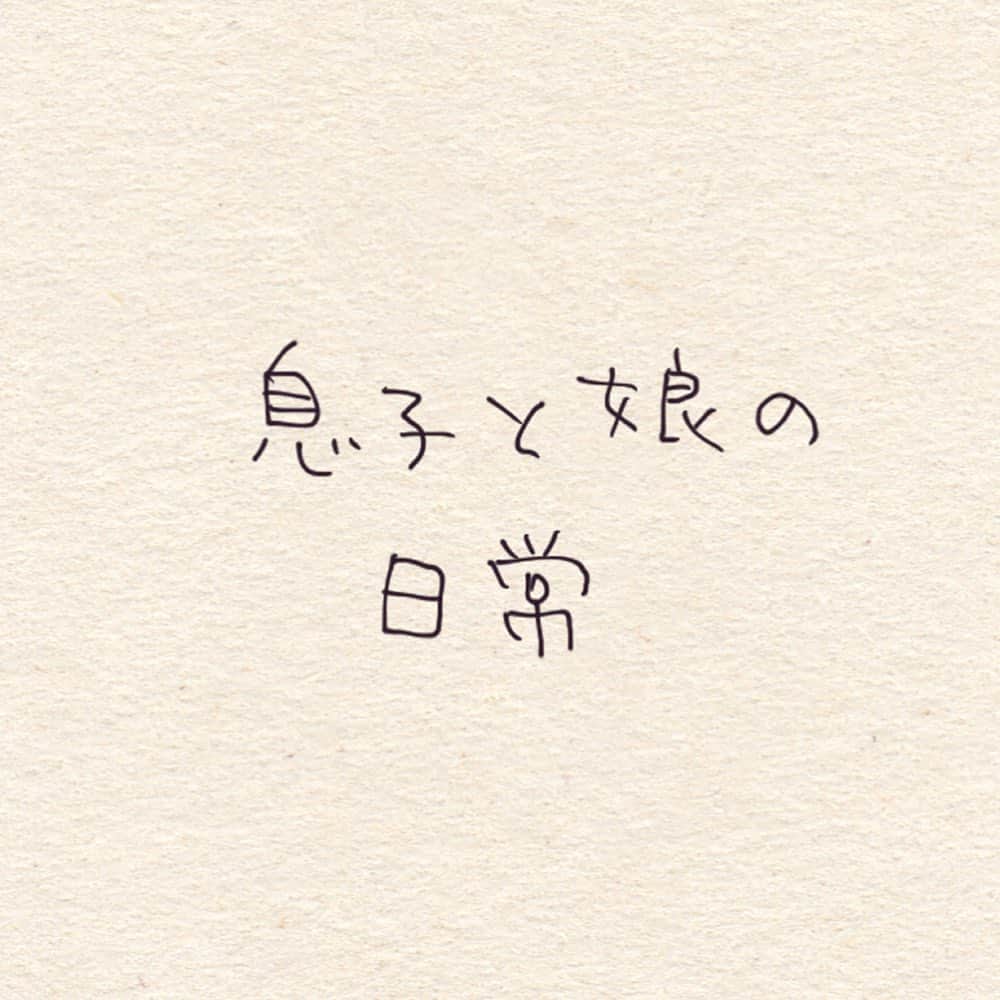 息子と娘の
日常